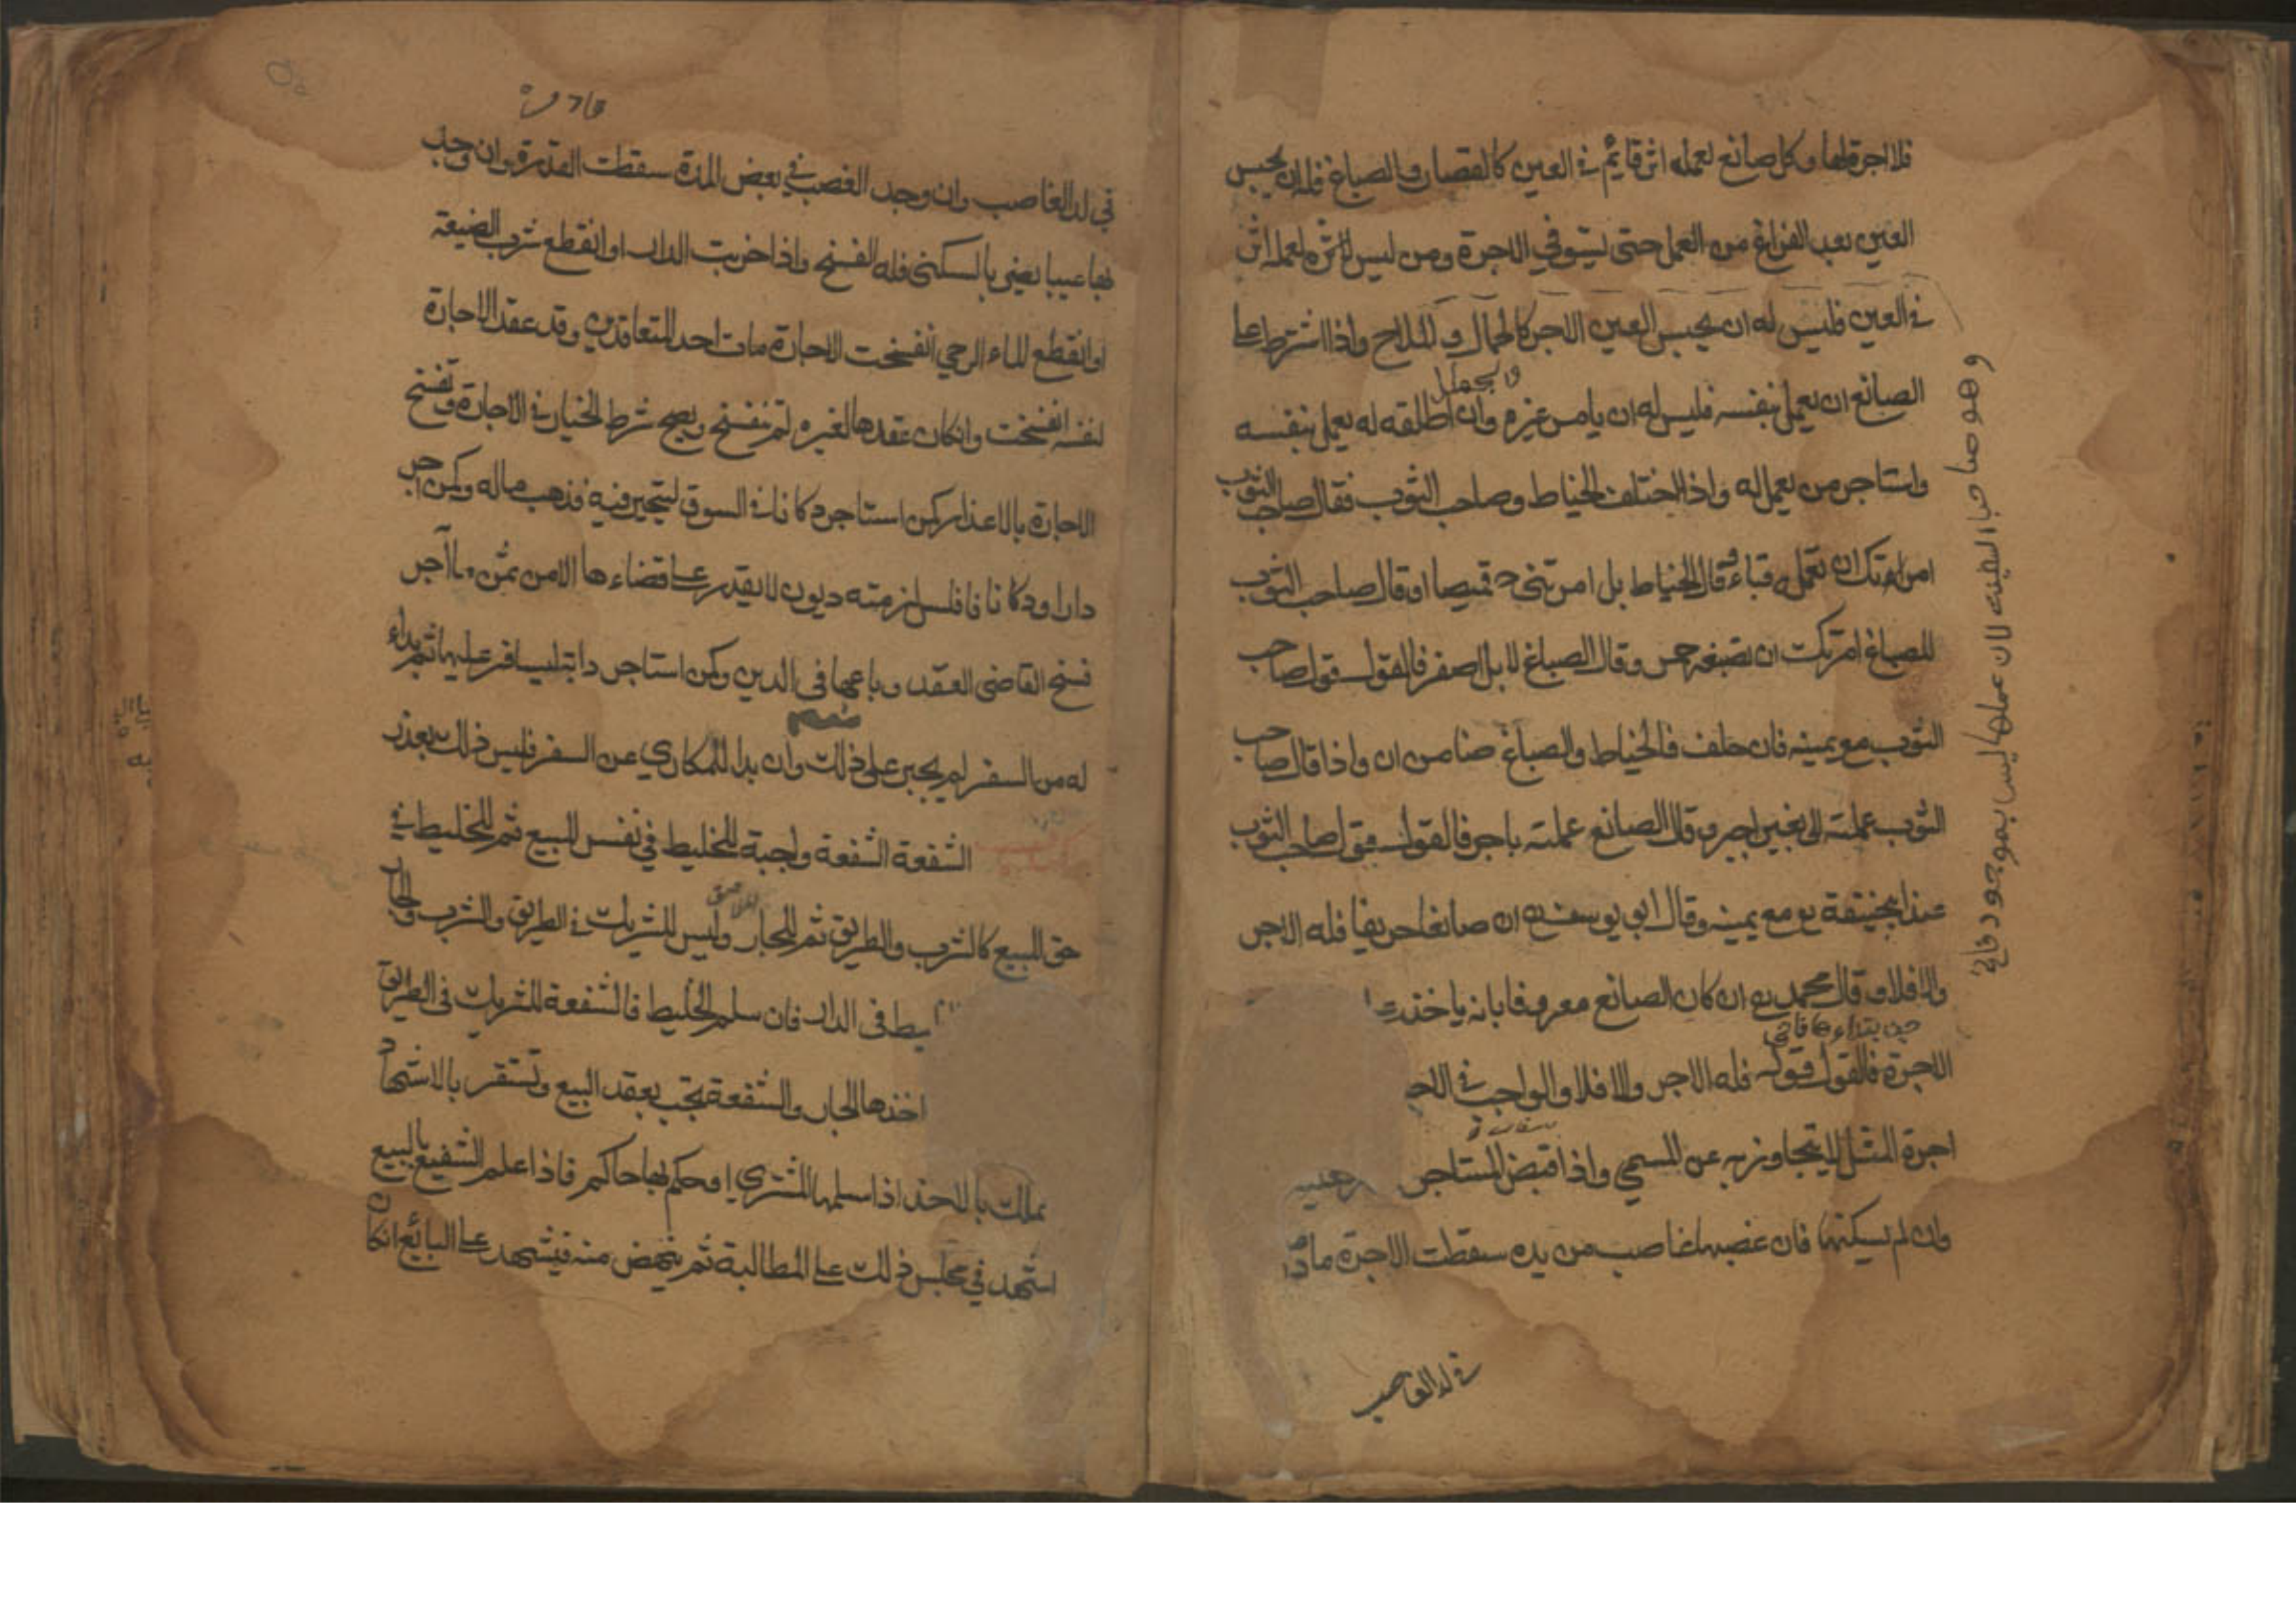 فلا اجرة لها وكل صانع لعمله اثر قايم في العين كالقصار والصباغ فله ان يحبس
العين بعد الفراغ من العمل حتى يستوفي الاجرة ومن ليس لعمله اثر
في العين فليس له ان يحبس العين الاجر كالحمال والملاح واذا اشترط على
الصانع ان يعمل بنفسه فليس له ان يامر غيره وان اطلقه له يعمل بنفسه
واستاجر من يعمل له واذا اختلف الخياط وصاحب الثوب فقال صاحب الثوب
امرتك ان تعمله قباء وقال الخياط بل امرتني قميصا او قال صاحب الثوب
للصباغ امرتك ان تصبغه حمر وقال الصباغ لا بل اصفر فالقول قول صاحب
الثوب مع يمينه فان حلف فالخياط والصباغ ضامن ان واذا قال صاحب
الثوب عملته لي بغير اجر وقال الصانع عملته باجر فالقول قول صاحب الثوب
عند ابحنيفة مع يمينه وقال ابو يوسف ان صانعا حريفا فله الاجر
والا فلا وقال محمد ان كان الصانع معروفا بانه ياخذ
الاجرة فالقول قوله فله الاجر والا فلا والواجب في
اجرة المثل لا يتجاوز به عن المسمي واذا اقبض المستاجر
وان لم يسكنها فان غصبها غاصب من يده سقطت الاجرة
وهو صاحب السفينه لان عملها ليس بموجود
في يد الغاصب وان وجد الغصب في بعض المدة سقطت القدره وان وجد
بها عيبا يضر بالسكنى فله الفسخ واذا خربت الدار او انقطع شرب الضيعة
او انقطع الماء الرحي انفسخت الاجارة مات احد المتعاقدين وقد عقد الاجارة
لنفسه انفسخت وانكان عقدها لغيره لم تنفسخ ويصح شرط الخيار في الاجارة وتفسخ
الاجارة بالاعذار كمن استاجر دكانا في السوق ليتجر فيه فذهب ماله وكمن اجر
دارا او دكانا فافلس لزمته ديون لا يقدر على قضاءها الا من ثمن ما آجر
فسخ القاضى العقد وباعها في الدين وكمن استاجر دابة ليسافر عليها ثم بداء
له من السفر لم يجبر على ذلك وان بدا للمكاري عن السفر فليس ذلك بعذر
الشفعة الشفعة واجبة للخليط في نفس المبيع ثم للخليط في
حق المبيع كالشرب والطريق ثم للجار وليس للشريك في الطريق والشرب والجار
في الدار فان سلم الخليط فالشفعة للشريك في الطريق
اخذها الجار والشفعة تجب بعقد البيع وتستقر بالاشهاد
تملك بالاخذ اذا سلمها المشتري او حكم بها حاكم فاذا علم الشفيع بالبيع
اشهد في مجلس ذلك على المطالبة ثم ينهض منه فيشهد على البائع انكان